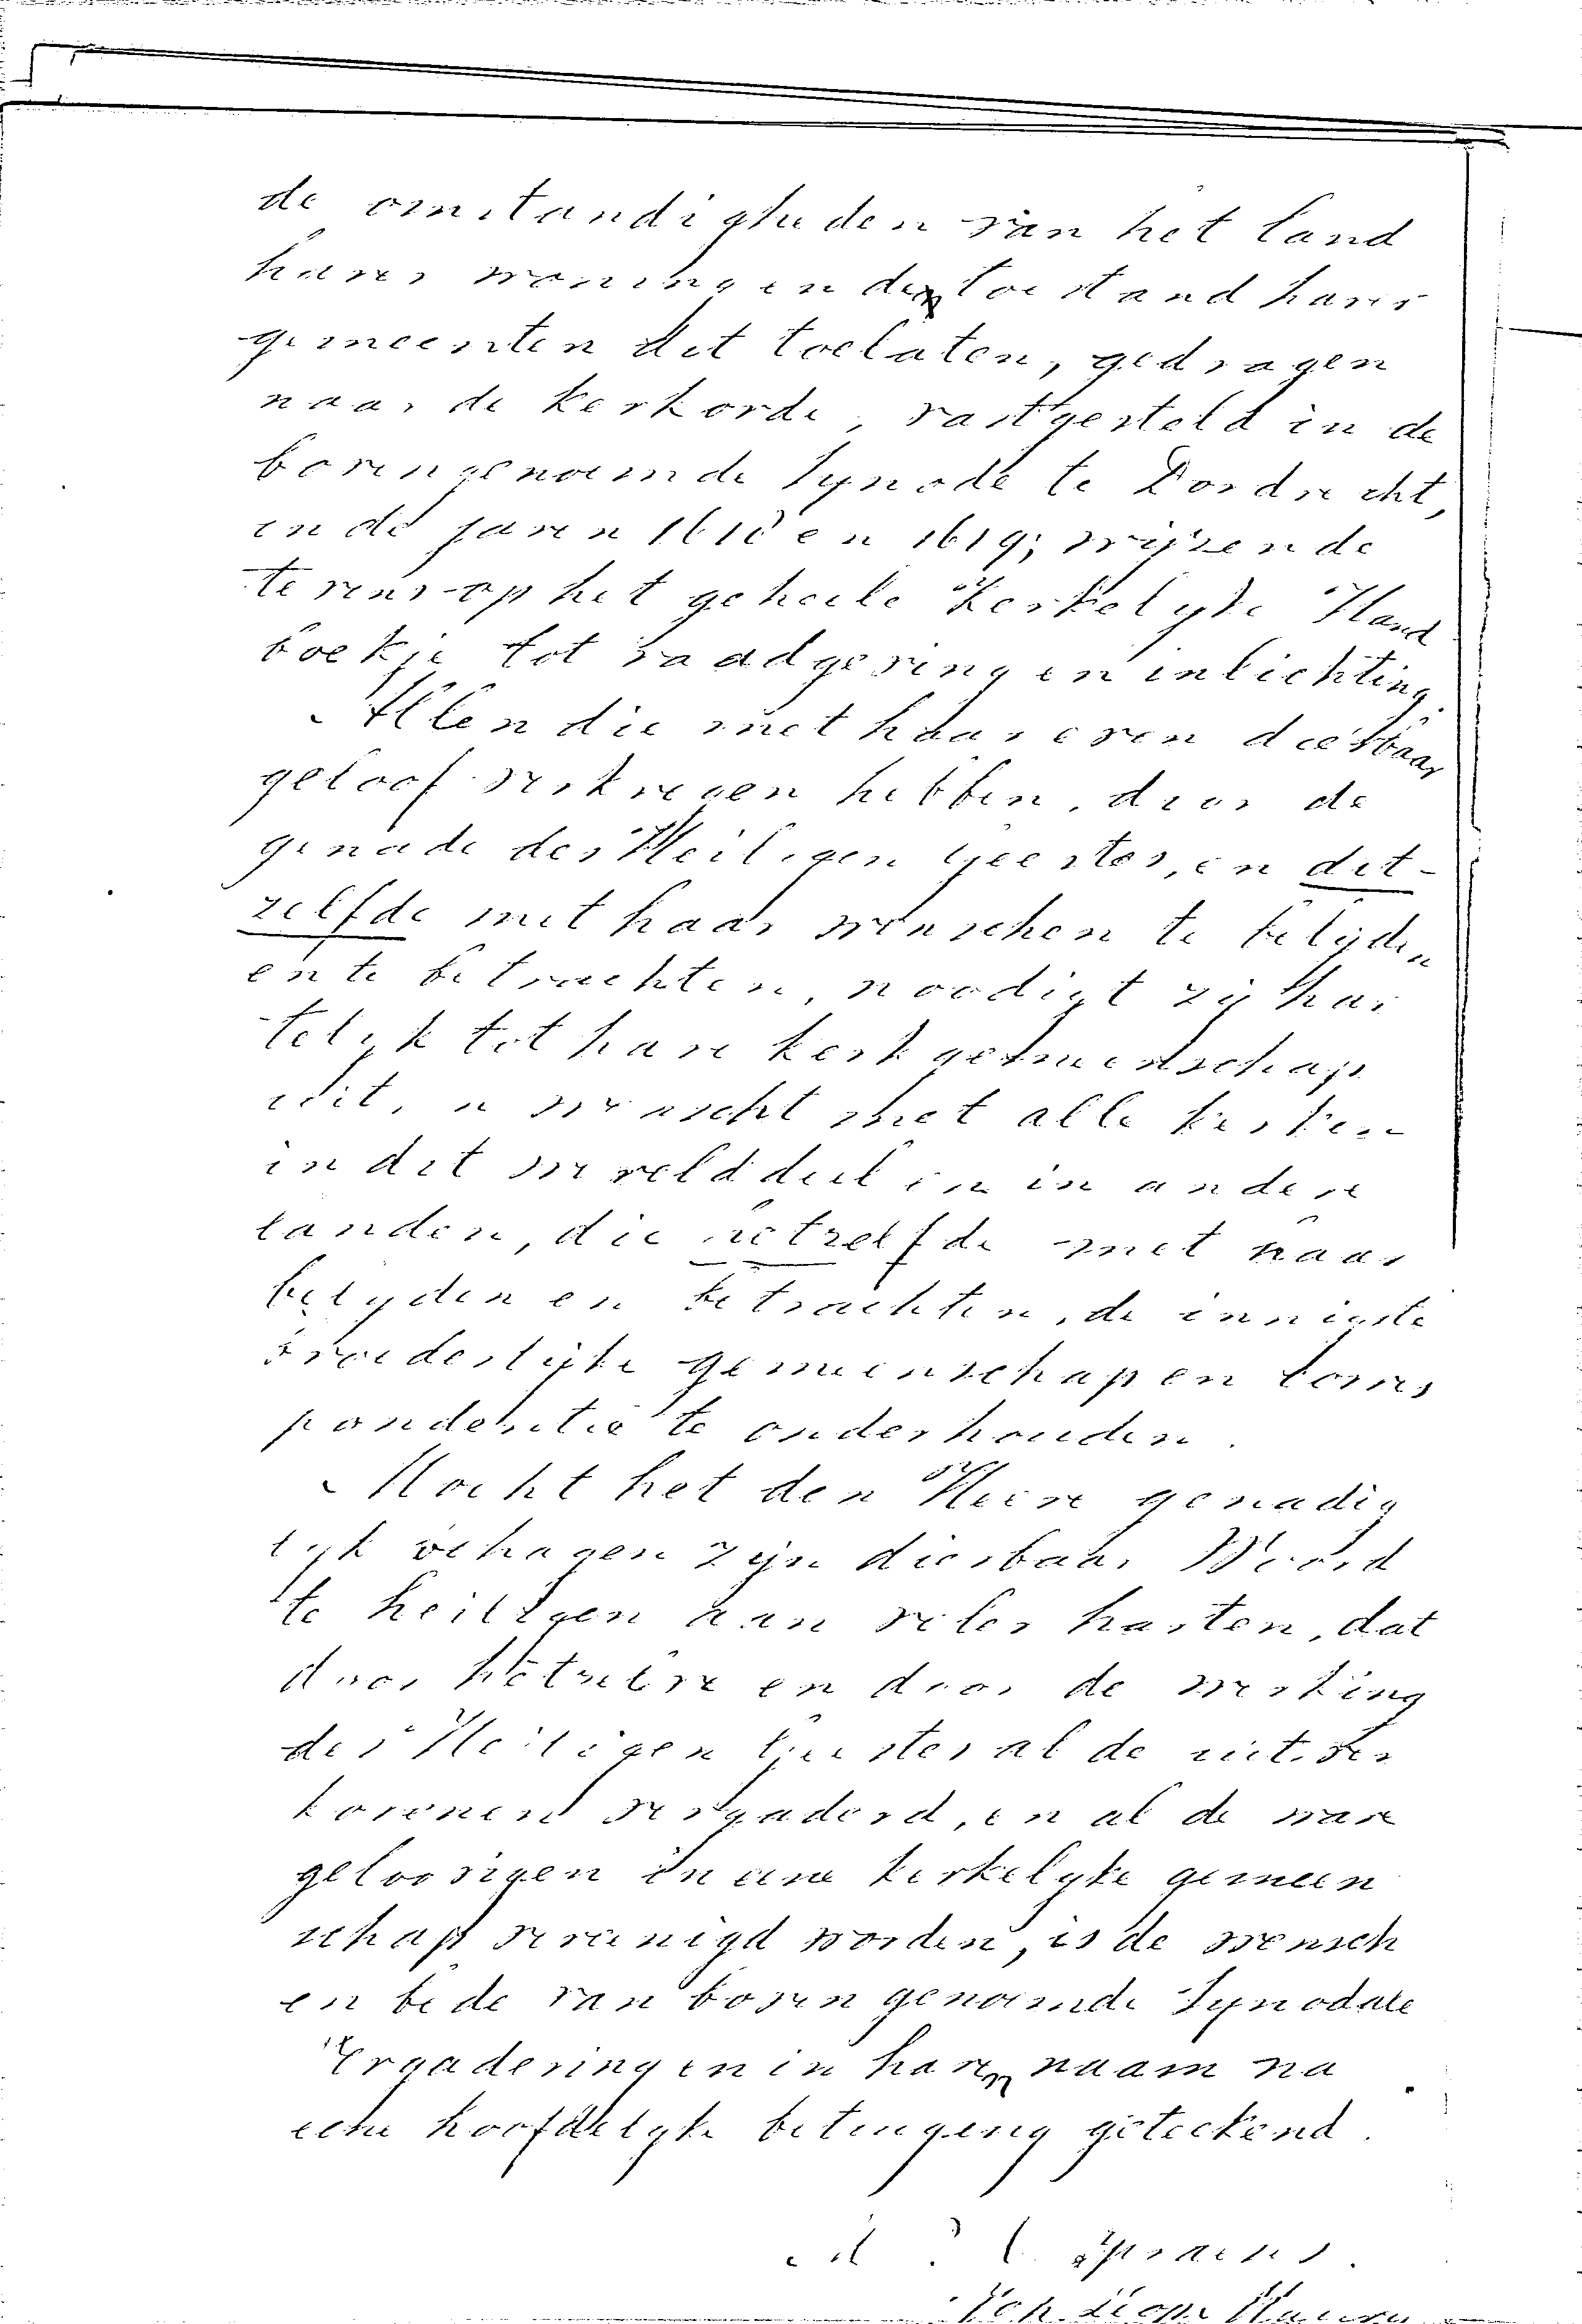 de omstandigheden van het land
harer woning en de toestand harer
gemeenten dit toelaten, gedragen
naar de Kerkorde, vastgesteld in de
bovengenoemde Synode te Dordrecht,
in de jaren 1618 en 1619; wijzende
tevens op het geheele Kerkelyke Hand
boekje tot raadgeving en inlichting.
Allen die met haar even dierbaar
geloof verkregen hebben, door de
genade des Heiligen Geestes, en dit-
zelfde met haar wenschen te belijden
en te betrachten, noodigt zij har
telyk tot hare kerkgemeenschap
uit, en wenscht met alle kerken
in dit werelddeel en in andere
landen, die hetzelfde met haar
belyden en betrachten, de innigste
broederlijke gemeenschap en corres
pondentie te onderhouden.
Mocht het den Heere genadig
lyk behagen zijn dierbaar Woord
te heiligen aan veler harten, dat
door hetzelve en door de werking
des Heiligen Geestes al de uitver
korenen vergaderd, en al de ware
geloovigen in eene kerkelyke gemeen
schap vereenigd worden, is de wensch
en bede van bovengenoemde Synodale
Vergadering en in haren naam na
eene hoofdelyke betuiging geteekend.